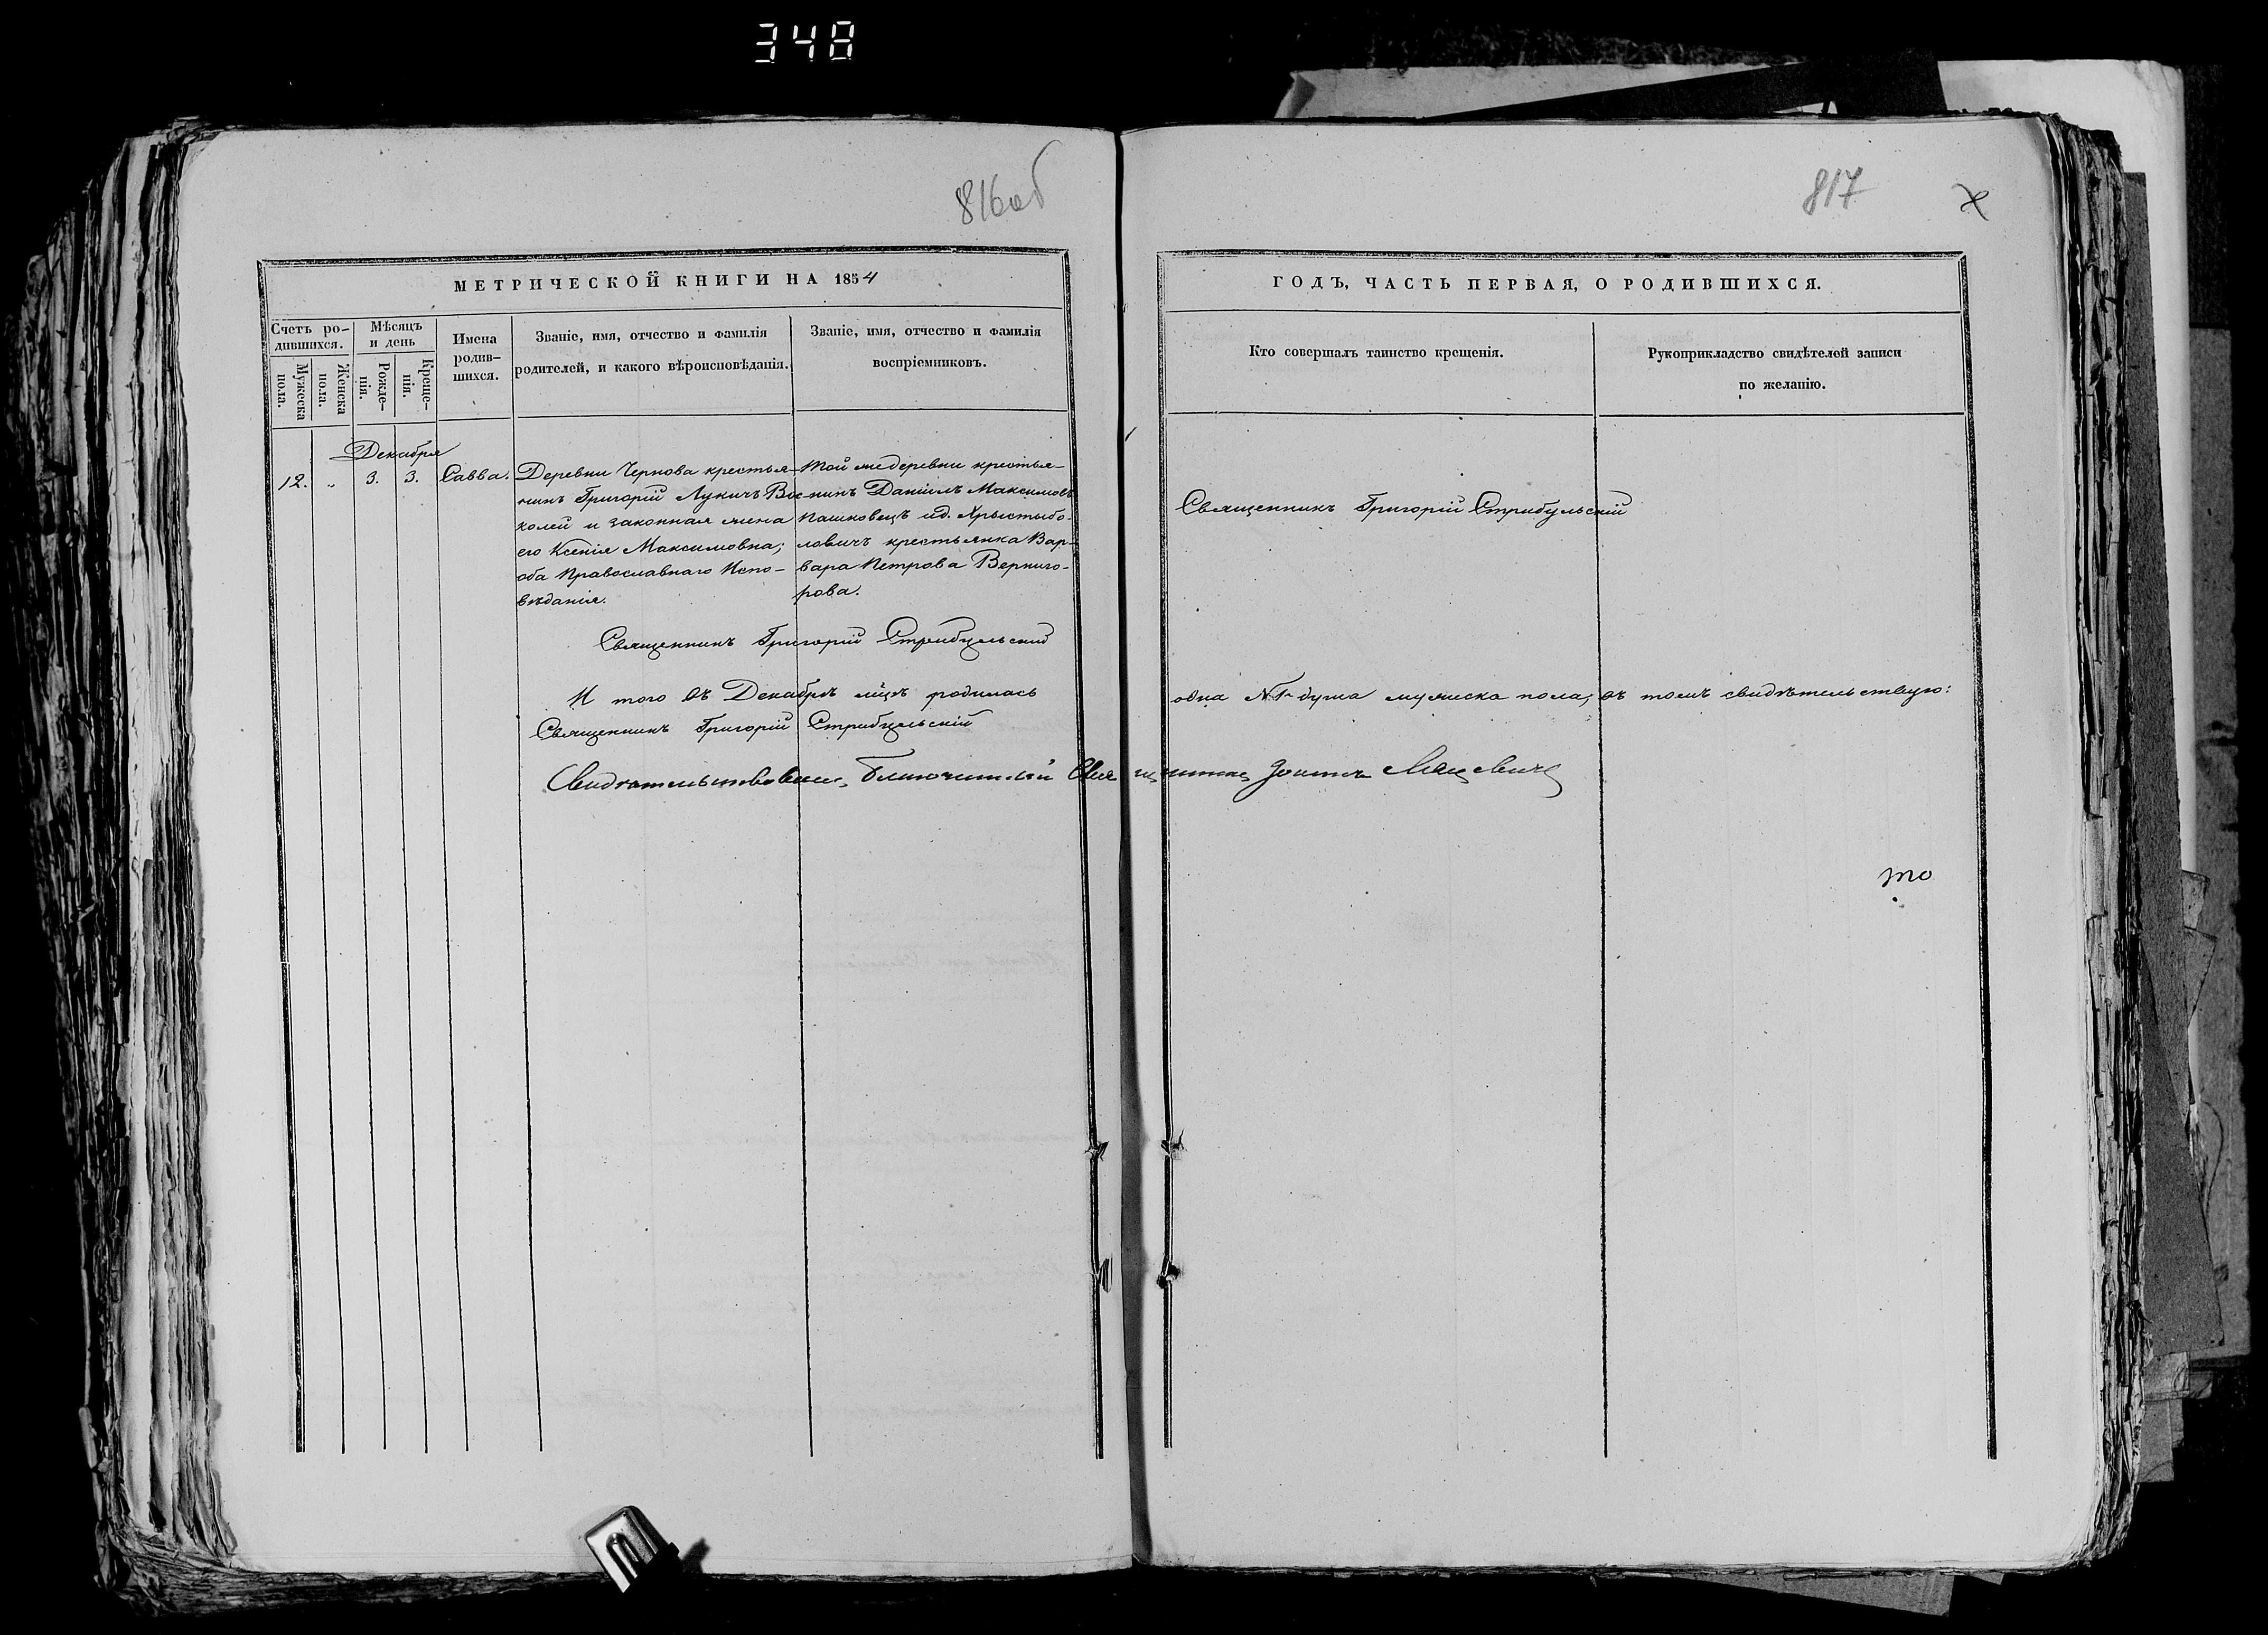 348
816об
817
МЕТРИЧЕСКОЙ КНИГИ НА 1854
ГОДЪ, ЧАСТЬ ПЕРВАЯ, О РОДИВШИХСЯ.
Счетъ ро-
дившихся.
Мужеска
пола.
Женска
пола.
Мѣсяцъ
и день
Рожде-
нія.
Креще-
нія.
Имена
родив-
шихся.
Званіе, имя, отчество и фамилія
родителей, и какого вѣроисповѣданія.
Званіе, имя, отчество и фамилія
воспріемниковъ.
Кто совершалъ таинство крещенія.
Рукоприкладство свидѣтелей записи
по желанію.
Декабря
12. " 3. 3. Савва.
Деревни Чернова крестья-
нинъ Григорій Лукичъ Вос-
колей и законная жена
его Ксенія Максимовна;
оба Православнаго Испо-
вѣданія.
Той же деревни крестья-
нинъ Даніилъ Максимовъ
Пашковецъ ид.
ловичъ крестьянка Вар-
вара Петрова Верниго-
рова.
Священникъ Григорій Стрибульскій
Священникъ Григорій Стрибульскій
И того въ Декабрѣ мцѣ родилась одна №1 душа мужеска пола; въ томъ свидѣтельствую:
Священникъ Григорій Стрибульскій
Свидѣтельствовалъ Благочинный Священникъ